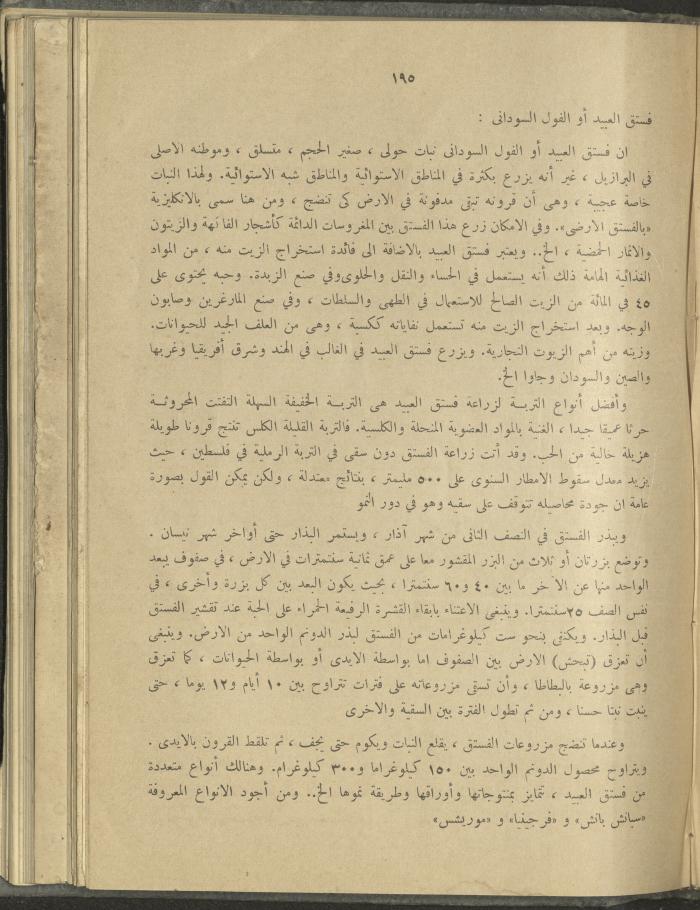 ١٩٥
فستق العبيد أو الفول السودانى :
ان فستق العبيد أو الفول السودانى نبات حولى ، صغير الحجم ، متسلق ، وموطنه الاصلى
في البرازيل ، غير أنه يزرع بكثرة في المناطق الاستوائية والمناطق شبه الاستوائية. ولهذا النبات
خاصة عجيبة ، وهى أن قرونه تبقى مدفونة في الارض كى تنضج ، ومن هنا سمى بالانكليزية
«بالفستق الارضى». وفي الامكان زرع هذا الفستق بين المغروسات الدائمة كأشجار الفاكهة والزيتون
والاثمار الحمضية ، الخ.. ويعتبر فستق العبيد بالاضافة الى فائدة استخراج الزيت منه ، من المواد
الغذائية الهامة ذلك أنه يستعمل في الحساء والنقل والحلوى وفي صنع الزبدة. وحبه يحتوى على
٤٥ في المائة من الزيت الصالح للاستعمال في الطهى والسلطات ، وفي صنع المارغرين وصابون
الوجه. وبعد استخراج الزيت منه تستعمل نفاياته ككسبة ، وهى من العلف الجيد للحيوانات.
وزيته من أهم الزيوت التجارية. ويزرع فستق العبيد في الغالب في الهند وشرق أفريقيا وغربها
والصين والسودان وجاوا الخ.
وأفضل أنواع التربة لزراعة فستق العبيد هى التربة الخفيفة السهلة التفتت المحروثة
حرثا عميقا جيدا ، الغنية بالمواد العضوية المنحلة والكلسية. فالتربة القليلة الكلس تنتج قرونا طويلة
هزيلة خالية من الحب. وقد أتت زراعة الفستق دون سقى في التربة الرملية في فلسطين ، حيث
يزيد معدل سقوط الامطار السنوى على ٥٠٠ مليمتر ، بنتائج معتدلة ، ولكن يمكن القول بصورة
عامة ان جودة محاصيله تتوقف على سقيه وهو في دور النمو
ويبذر الفستق في النصف الثانى من شهر آذار ، ويستمر البذار حتى أواخر شهر نيسان .
وتوضع بزرتان أو ثلاث من البزر المقشور معا على عمق ثمانية سنتمترات في الارض ، في صفوف يبعد
الواحد منها عن الآخر ما بين ٤٠ و٦٠ سنتمترا ، بحيث يكون البعد بين كل بزرة وأخرى ، في
نفس الصف ٢٥سنتمترا. وينبغى الاعتناء بابقاء القشرة الرفيعة الحمراء على الحبة عند تقشير الفستق
قبل البذار. ويكتفى بنحو ست كيلوغرامات من الفستق لبذر الدونم الواحد من الارض. وينبغى
أن تعزق (تبحش) الارض بين الصفوف اما بواسطة الايدى أو بواسطة الحيوانات ، كما تعزق
وهى مزروعة بالبطاطا ، وأن تسقى مزروعاته على فترات تتراوح بين ١٠ أيام و١٢ يوما ، حتى
ينبت نبتا حسنا ، ومن ثم تطول الفترة بين السقية والاخرى
وعندما تنضج مزروعات الفستق ، يقلع النبات ويكوم حتى يجف ، ثم تلقط القرون بالايدى .
ويتراوح محصول الدونم الواحد بين ١٥٠ كيلوغراما و٣٠٠ كيلوغرام. وهنالك أنواع متعددة
من فستق العبيد ، تتمايز بمنتوجاتها وأوراقها وطريقة نموها الخ.. ومن أجود الانواع المعروفة
«سبانش بانش» و «فرجينيا» و «موريشس»